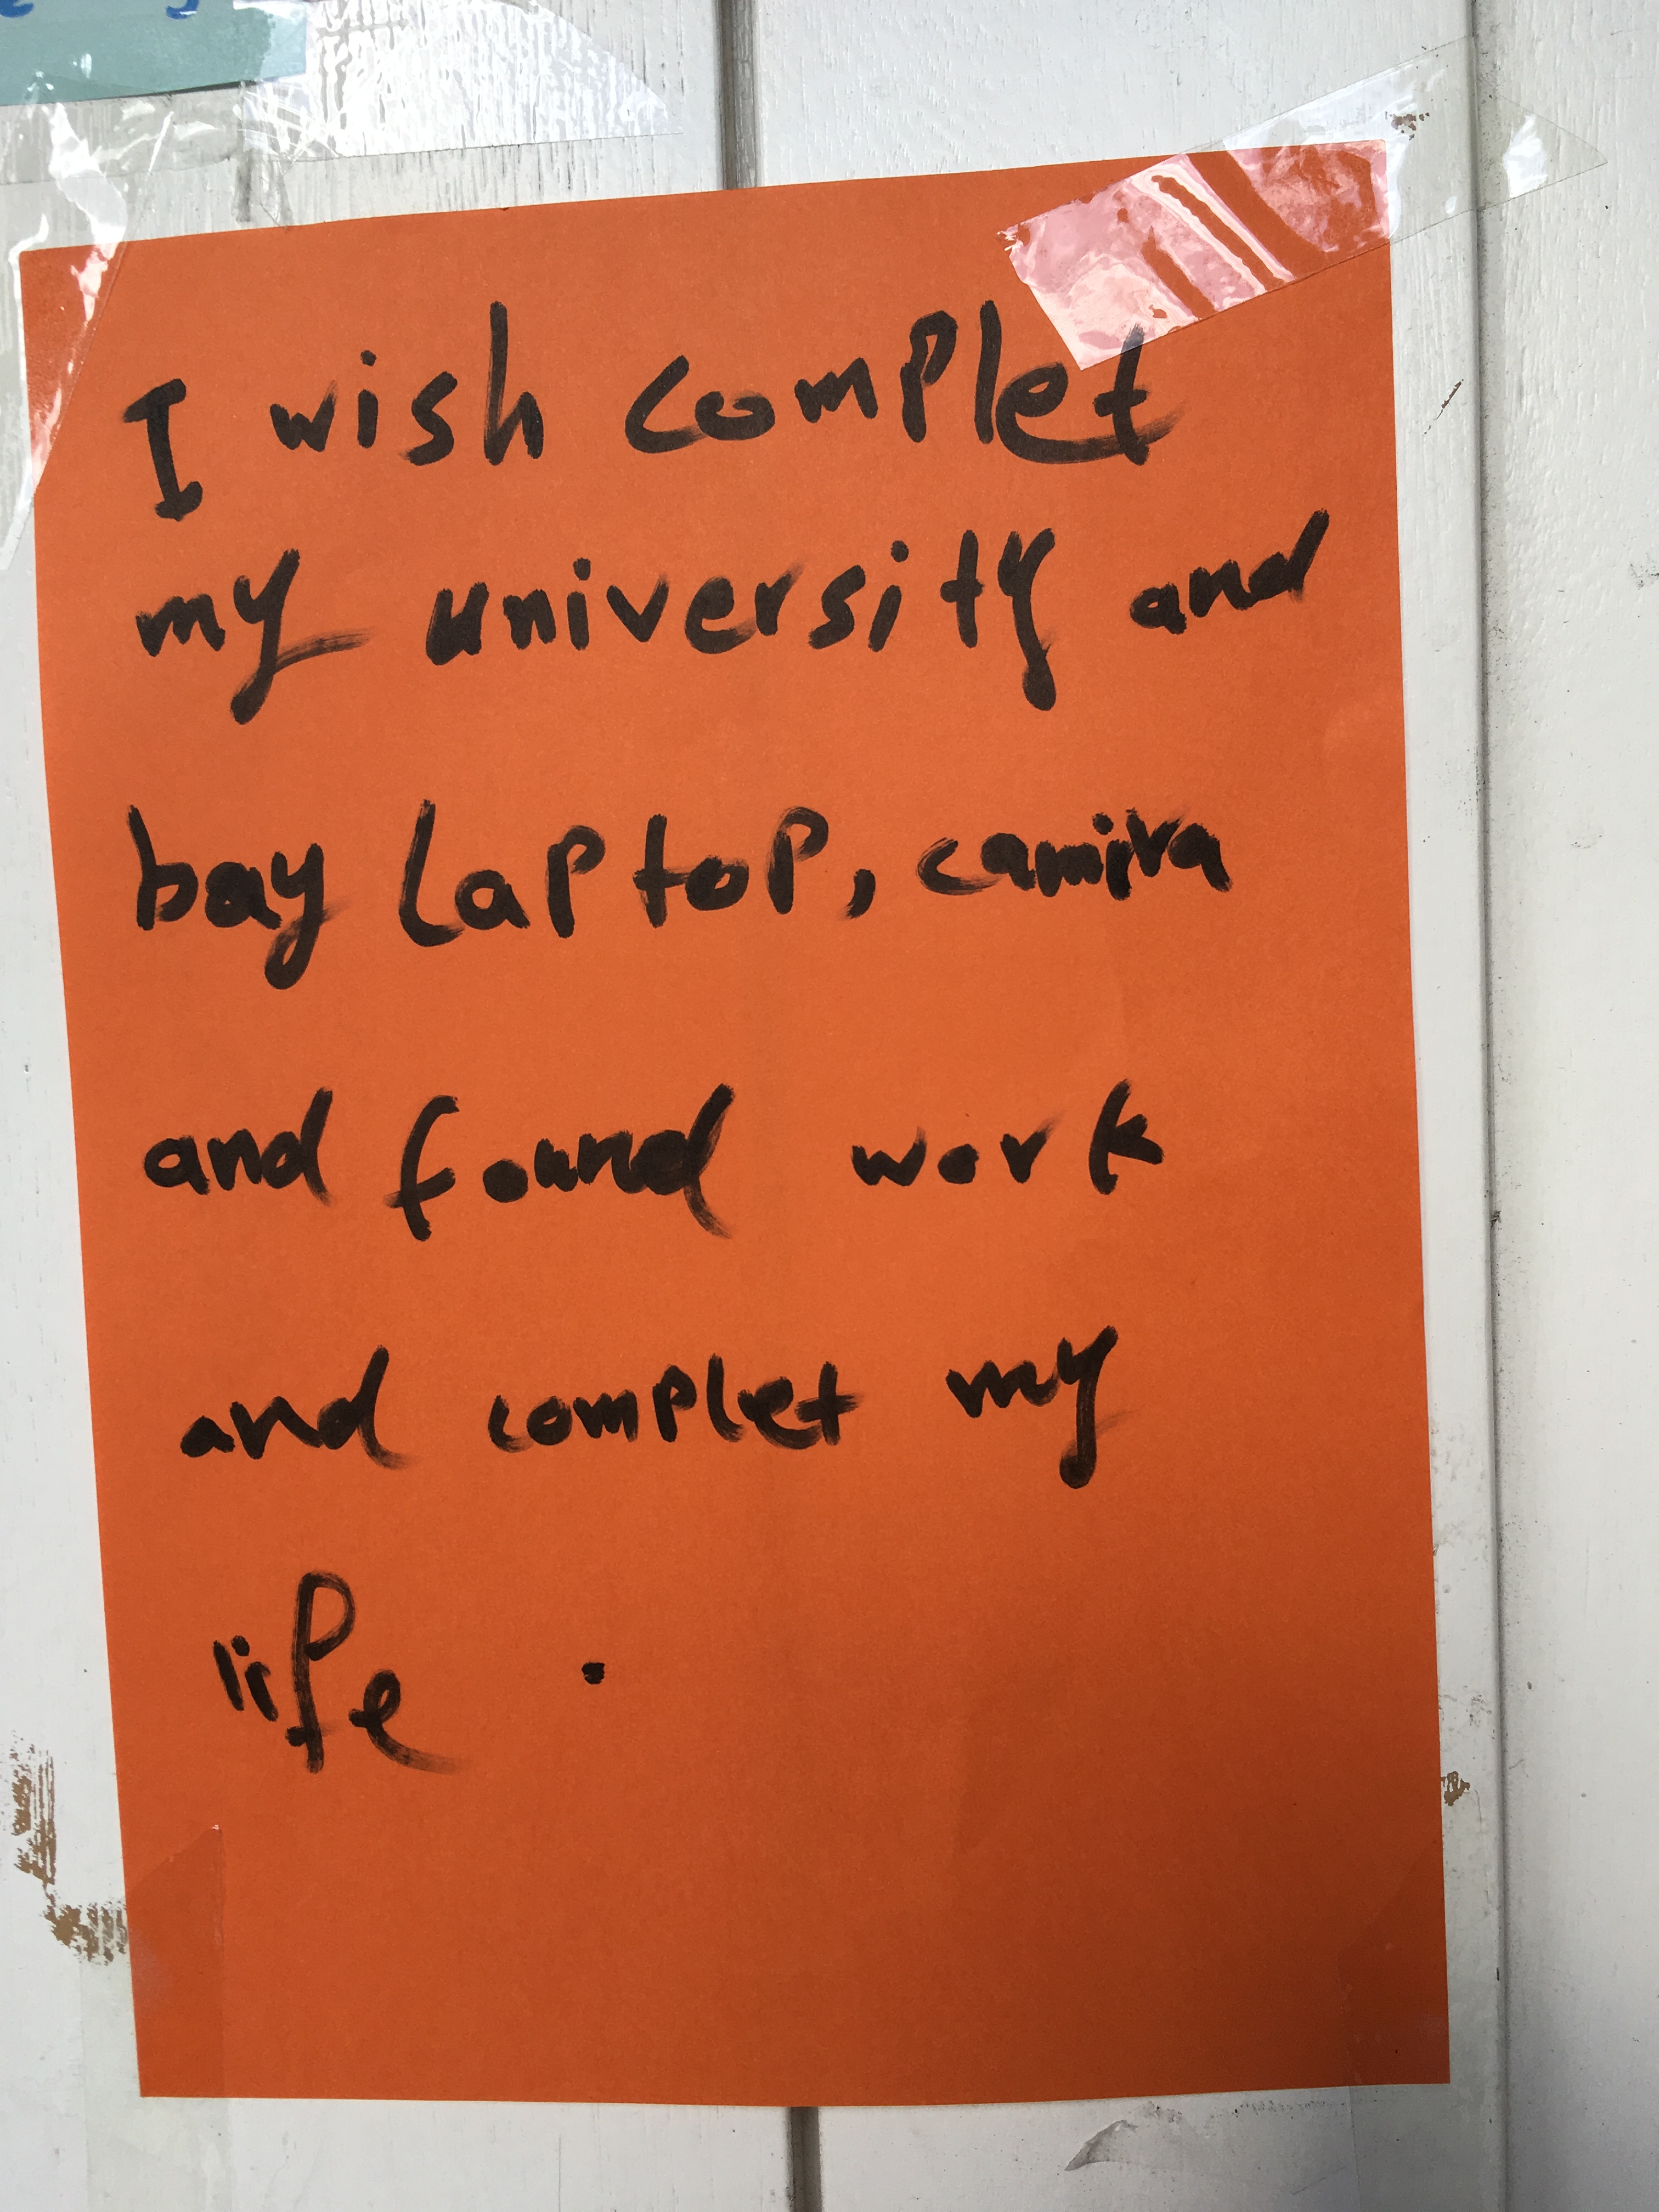 I wish complet
my university and
bay laptop, camira
and found work
and complet my
life .